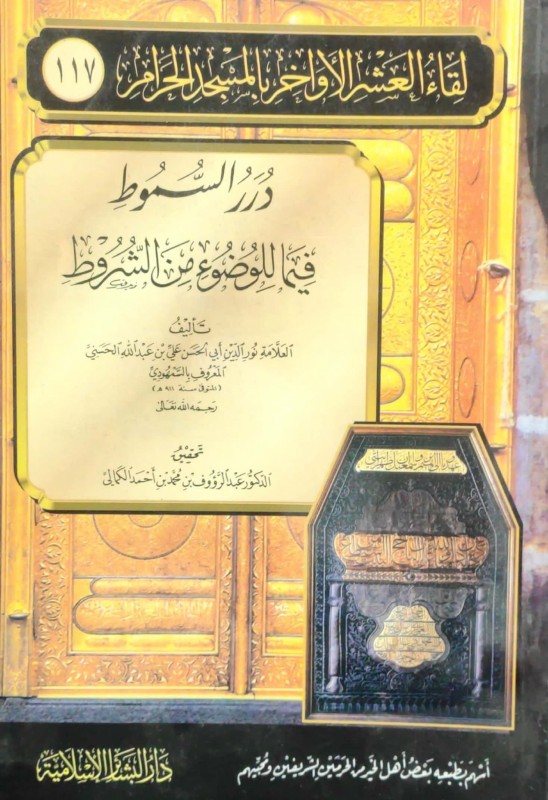 لقاء العشر الأواخر بالمسجد الحرام
١١٧
دُرَرُ السُّمُوطِ
فِيمَا لِلْوُضُوءِ مِنَ الشُّرُوطِ
تَأليفُ
العَلَّامَةِ نُورِ الدِّينِ أَبي الحَسَنِ عَلِيِّ بن عَبْدِ اللهِ الحَسَنِيِّ
المَعْرُوفِ بِالسَّمْهُودِيِّ
(المتوفى سنة ٩١١ هـ)
رَحِمَهُ الله تعَالىٰ
تَحْقِيقُ
الدكتور عبد الرَّؤُوف بن محمّد بن أحمد الكماليّ
أَسْهَمَ بِطَبْعِهِ بَعْضُ أَهْلِ الخَيْرِ مِنَ الحَرَمَيْنِ الشَّرِيفَيْنِ وَمُحِبِّيهِم
دَارُ البَشَائِرِ الإِسْلَامِيَّة